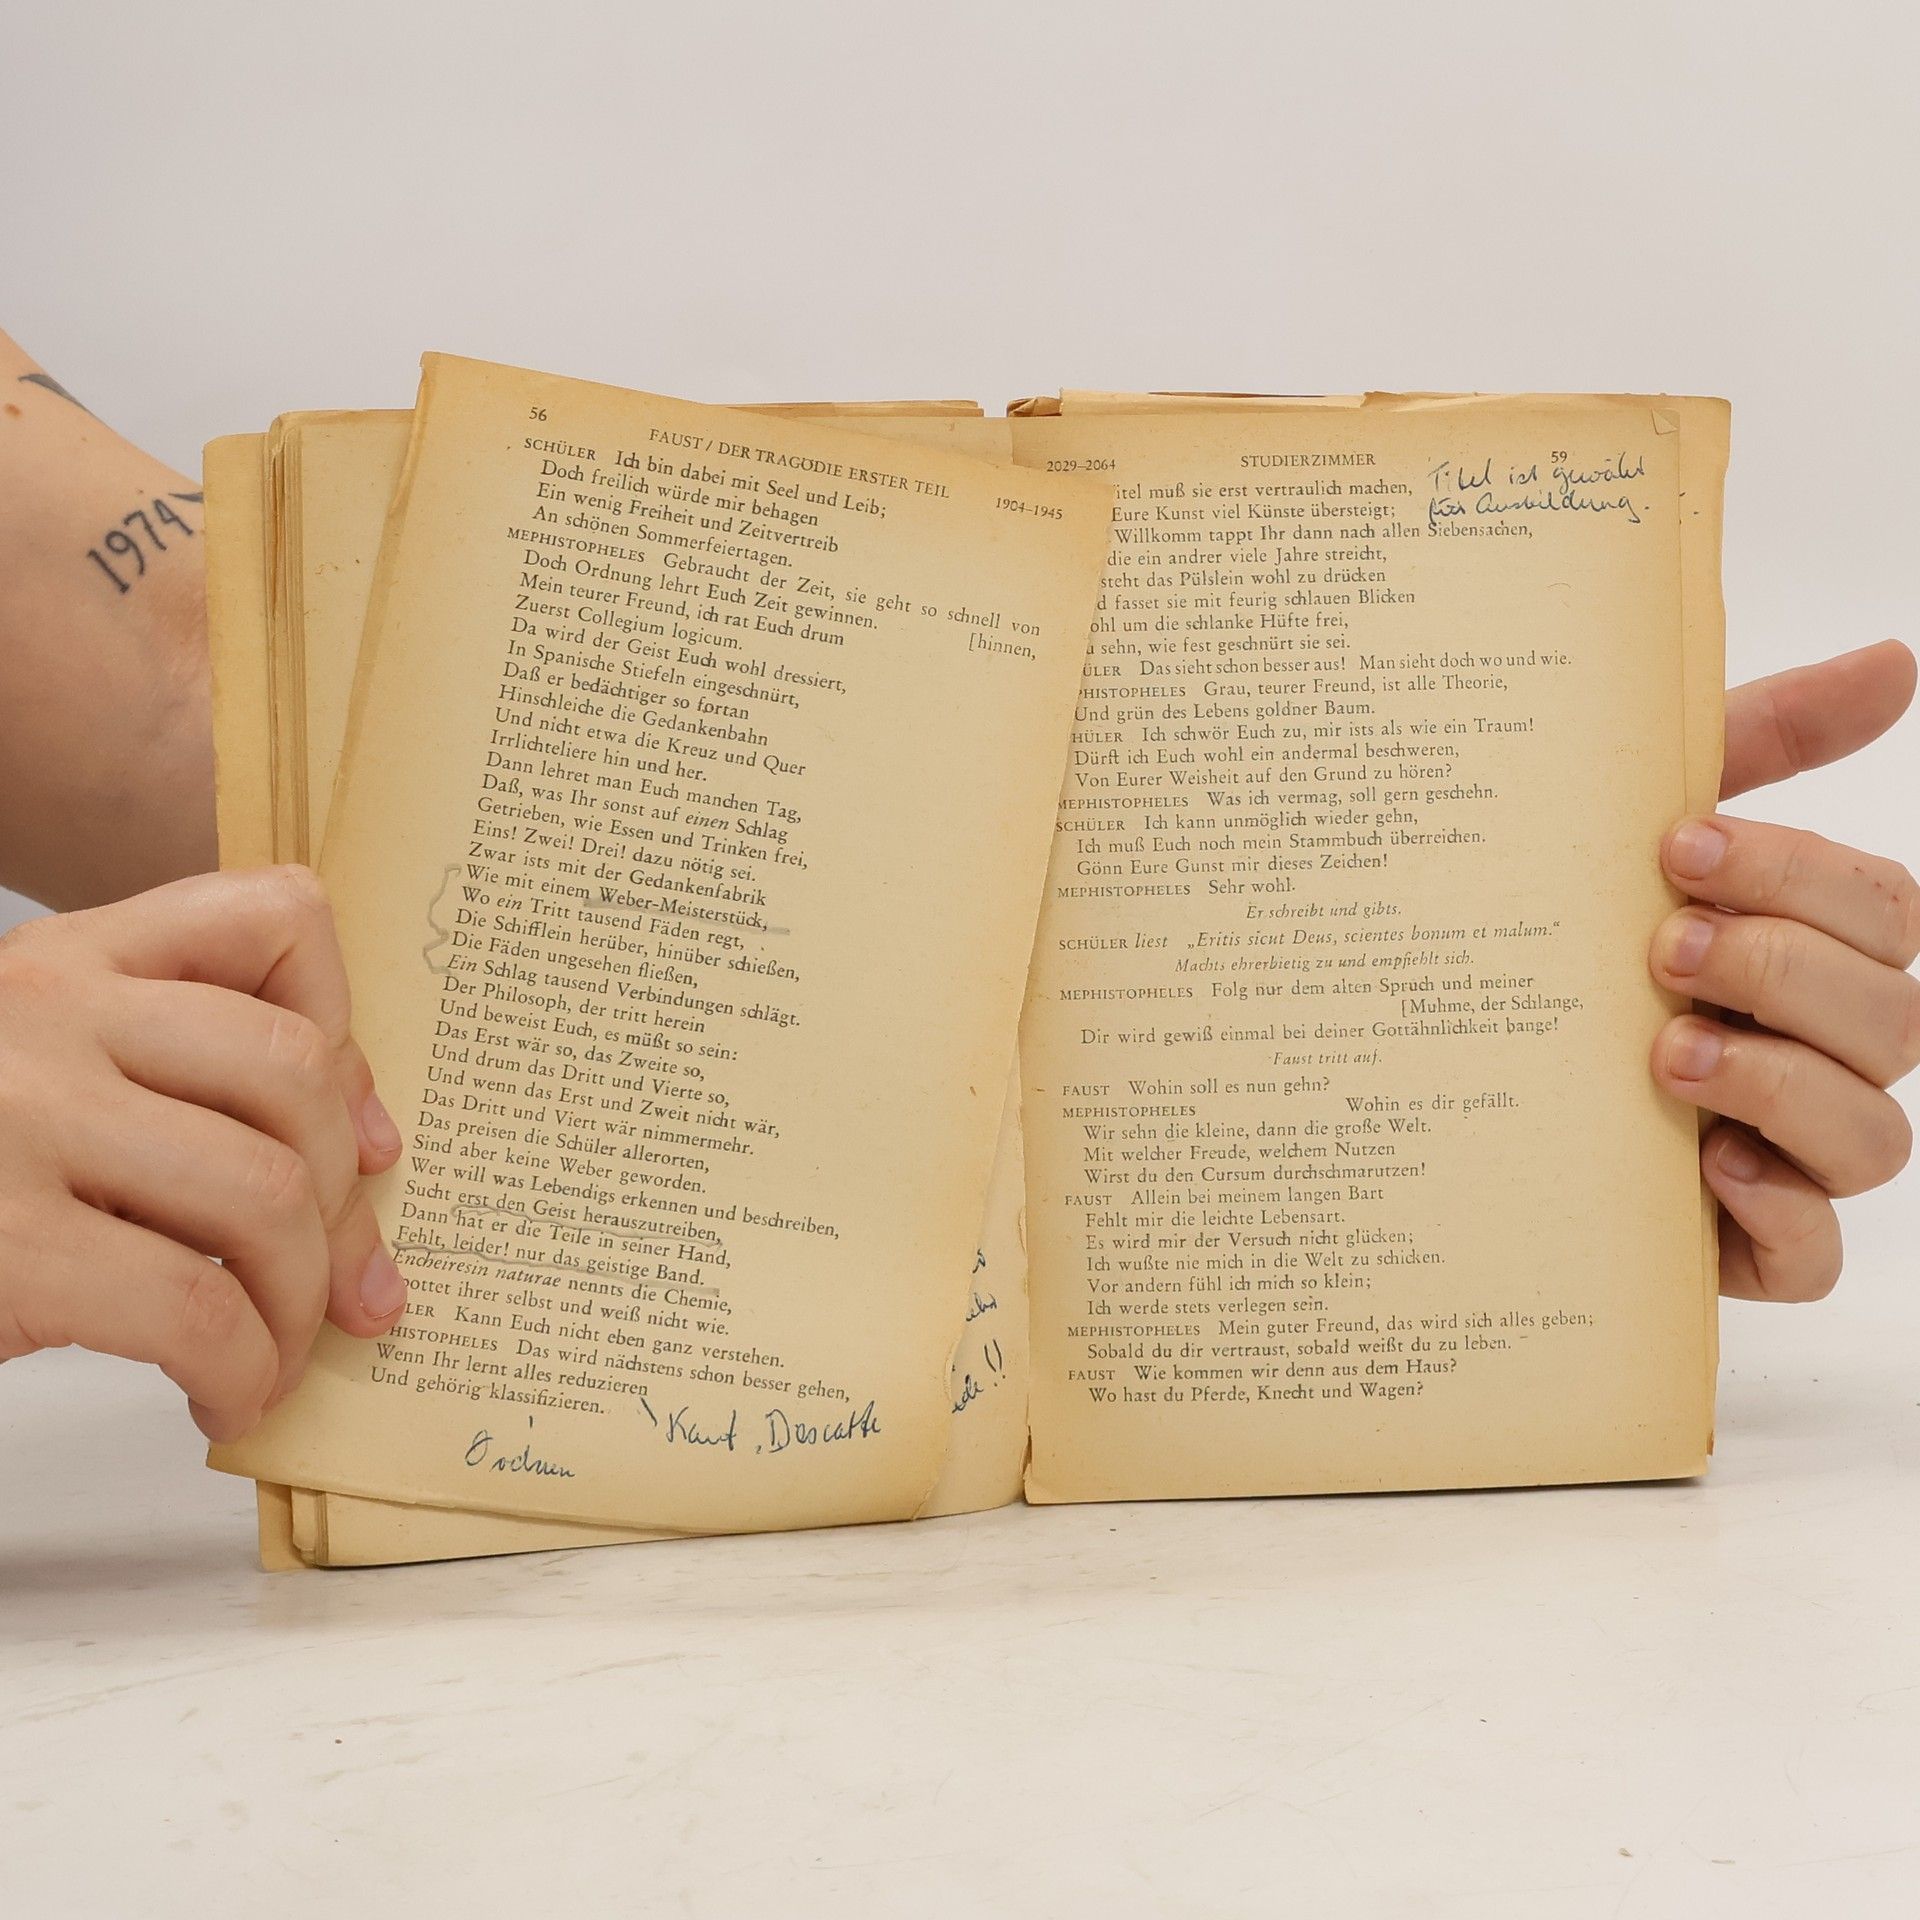 1974
56
FAUST / DER TRAGÖDIE ERSTER TEIL
1904–1945
SCHÜLER Ich bin dabei mit Seel und Leib;
Doch freilich würde mir behagen
Ein wenig Freiheit und Zeitvertreib
An schönen Sommerfeiertagen.
MEPHISTOPHELES Gebraucht der Zeit, sie geht so schnell von
[hinnen,
Doch Ordnung lehrt Euch Zeit gewinnen.
Mein teurer Freund, ich rat Euch drum
Zuerst Collegium logicum.
Da wird der Geist Euch wohl dressiert,
In Spanische Stiefeln eingeschnürt,
Daß er bedächtiger so fortan
Hinschleiche die Gedankenbahn
Und nicht etwa die Kreuz und Quer
Irrlichteliere hin und her.
Dann lehret man Euch manchen Tag,
Daß, was Ihr sonst auf einen Schlag
Getrieben, wie Essen und Trinken frei,
Eins! Zwei! Drei! dazu nötig sei.
Zwar ists mit der Gedankenfabrik
Wie mit einem Weber-Meisterstück,
Wo ein Tritt tausend Fäden regt,
Die Schifflein herüber, hinüber schießen,
Die Fäden ungesehen fließen,
Ein Schlag tausend Verbindungen schlägt.
Der Philosoph, der tritt herein
Und beweist Euch, es müßt so sein:
Das Erst wär so, das Zweite so,
Und drum das Dritt und Vierte so,
Und wenn das Erst und Zweit nicht wär,
Das Dritt und Viert wär nimmermehr.
Das preisen die Schüler allerorten,
Sind aber keine Weber geworden.
Wer will was Lebendigs erkennen und beschreiben,
Sucht erst den Geist herauszutreiben,
Dann hat er die Teile in seiner Hand,
Fehlt, leider! nur das geistige Band.
Encheiresin naturae nennts die Chemie,
pottet ihrer selbst und weiß nicht wie.
LER Kann Euch nicht eben ganz verstehen.
PHISTOPHELES Das wird nächstens schon besser gehen,
Wenn Ihr lernt alles reduzieren
Und gehörig klassifizieren.
Kant, Descatte
2029–2064
STUDIERZIMMER
59
Titel ist gewählt
für Ausbildung.
itel muß sie erst vertraulich machen,
Eure Kunst viel Künste übersteigt;
Willkomm tappt Ihr dann nach allen Siebensachen,
die ein andrer viele Jahre streicht,
steht das Pülslein wohl zu drücken
d fasset sie mit feurig schlauen Blicken
ohl um die schlanke Hüfte frei,
u sehn, wie fest geschnürt sie sei.
ÜLER Das sieht schon besser aus! Man sieht doch wo und wie.
PHISTOPHELES Grau, teurer Freund, ist alle Theorie,
Und grün des Lebens goldner Baum.
HÜLER Ich schwör Euch zu, mir ists als wie ein Traum!
Dürft ich Euch wohl ein andermal beschweren,
Von Eurer Weisheit auf den Grund zu hören?
MEPHISTOPHELES Was ich vermag, soll gern geschehn.
SCHÜLER Ich kann unmöglich wieder gehn,
Ich muß Euch noch mein Stammbuch überreichen.
Gönn Eure Gunst mir dieses Zeichen!
MEPHISTOPHELES Sehr wohl.
Er schreibt und gibts.
SCHÜLER liest „Eritis sicut Deus, scientes bonum et malum.“
Machts ehrerbietig zu und empfiehlt sich.
MEPHISTOPHELES Folg nur dem alten Spruch und meiner
[Muhme, der Schlange,
Dir wird gewiß einmal bei deiner Gottähnlichkeit bange!
Faust tritt auf.
FAUST Wohin soll es nun gehn?
MEPHISTOPHELES Wohin es dir gefällt.
Wir sehn die kleine, dann die große Welt.
Mit welcher Freude, welchem Nutzen
Wirst du den Cursum durchschmarutzen!
FAUST Allein bei meinem langen Bart
Fehlt mir die leichte Lebensart.
Es wird mir der Versuch nicht glücken;
Ich wußte nie mich in die Welt zu schicken.
Vor andern fühl ich mich so klein;
Ich werde stets verlegen sein.
MEPHISTOPHELES Mein guter Freund, das wird sich alles geben;
Sobald du dir vertraust, sobald weißt du zu leben.
FAUST Wie kommen wir denn aus dem Haus?
Wo hast du Pferde, Knecht und Wagen?